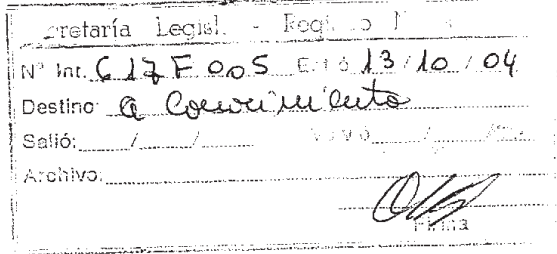 cretaría Legisl. -
Nº Int. C 17 F 005 13/10/04
Destino: a Conocimiento
Salió: / /
Archivo:
Firma